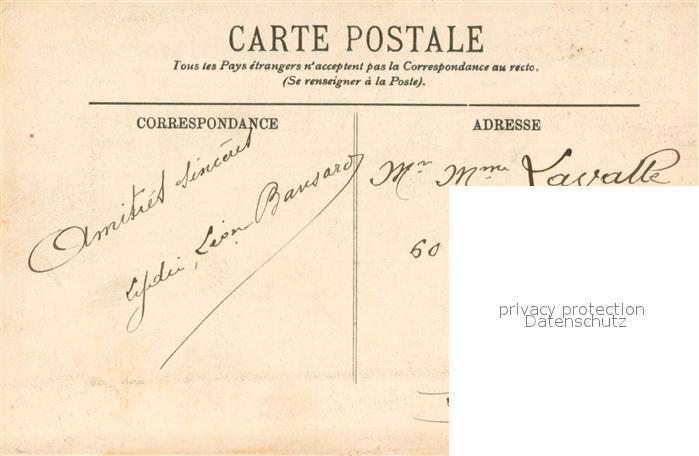 CARTE POSTALE
Tous les Pays étrangers n'acceptent pas la Correspondance au recto.
(Se renseigner à la Poste).
CORRESPONDANCE
Amitiés sincères
Lydie, Léon Bansard
ADRESSE
Mr Mme Lavalle
60
privacy protection
Datenschutz